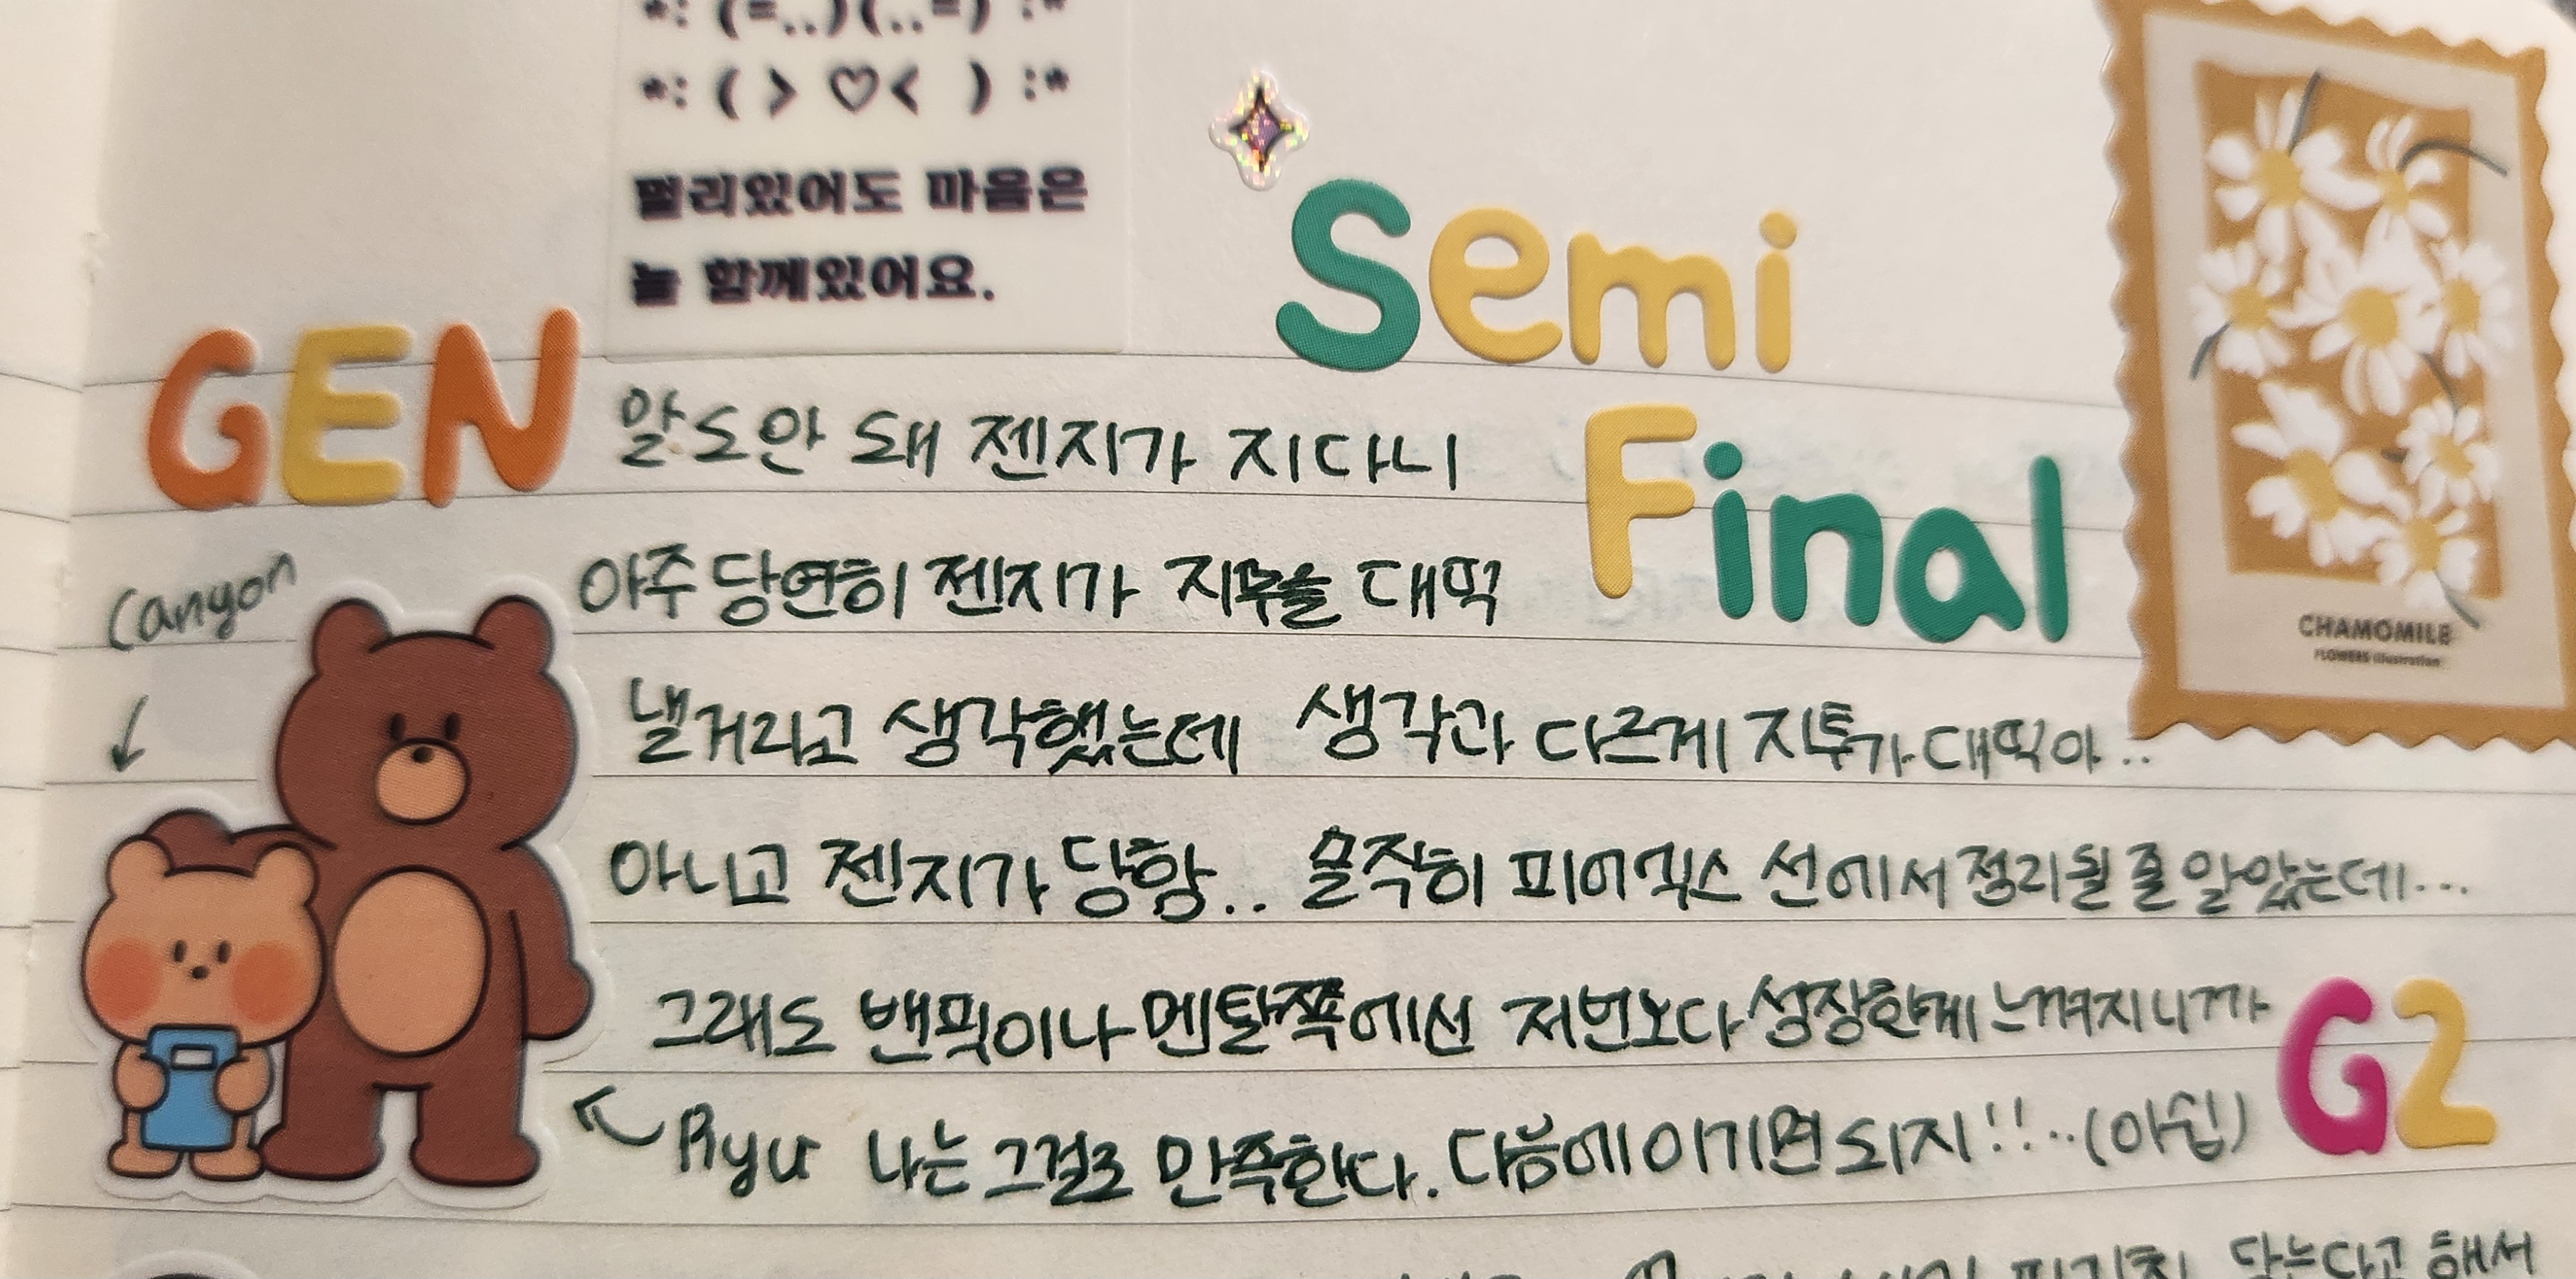 *: (=..)(..=) :*
*: ( > ♡< ) :*
멀리있어도 마음은
늘 함께있어요.
Semi
Final
CHAMOMILE
FLOWERS Illustration
GEN
말도안 돼 젠지가 지다니
Canyon
아주 당연히 젠지가 지투를 대떡
낼거라고 생각했는데 생각과 다르게 지투가 대떡아..
아니고 젠지가 당함.. 솔직히 피어엑스 선에서 정리될 줄 알았는데...
그래도 밴픽이나 멘탈쪽에선 저번보다 성장한게 느껴지니까
G2
Ryu 나는 그걸로 만족한다. 다음에 이기면 되지!!..(아쉽)
당는다고 해서